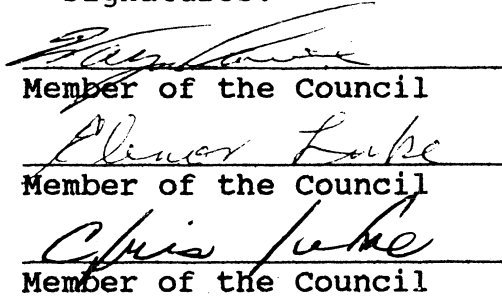 Signatures:
Member of the Council
Elenor Luke
Member of the Council
Chris Luke
Member of the Council